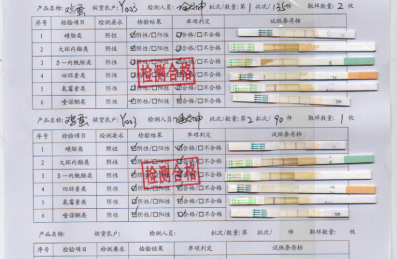 产品名称: 鸡蛋 供货农户: Y023 检测人员: 批次/数量: 第1批次/135件 取样数量: 2 枚
序号 检验项目 检测要求 检验结果 单项判定 试纸条存档
1 磺胺类 阴性 ☑阴性/□阳性 ☑合格/□不合格
2 大环内酯类 阴性 ☑阴性/□阳性 ☑合格/□不合格
3 β-内酰胺类 阴性 ☑阴性/□阳性 ☑合格/□不合格
4 四环素类 阴性 ☑阴性/□阳性 ☑合格/□不合格
5 氯霉素类 阴性 ☑阴性/□阳性 ☑合格/□不合格
6 喹诺酮类 阴性 ☑阴性/□阳性 ☑合格/□不合格
检测合格
产品名称: 鸡蛋 供货农户: Y023 检测人员: 批次/数量: 第2批次/90件 取样数量: 1 枚
序号 检验项目 检测要求 检验结果 单项判定 试纸条存档
1 磺胺类 阴性 ☑阴性/□阳性 ☑合格/□不合格
2 大环内酯类 阴性 ☑阴性/□阳性 ☑合格/□不合格
3 β-内酰胺类 阴性 ☑阴性/□阳性 ☑合格/□不合格
4 四环素类 阴性 ☑阴性/□阳性 ☑合格/□不合格
5 氯霉素类 阴性 ☑阴性/□阳性 ☑合格/□不合格
6 喹诺酮类 阴性 ☑阴性/□阳性 ☑合格/□不合格
检测合格
产品名称: 供货农户: 检测人员: 批次/数量: 第 批次/ 件 取样数量: 枚
序号 检验项目 检测要求 检验结果 单项判定 试纸条存档
1 磺胺类 阴性 □阴性/□阳性 □合格/□不合格